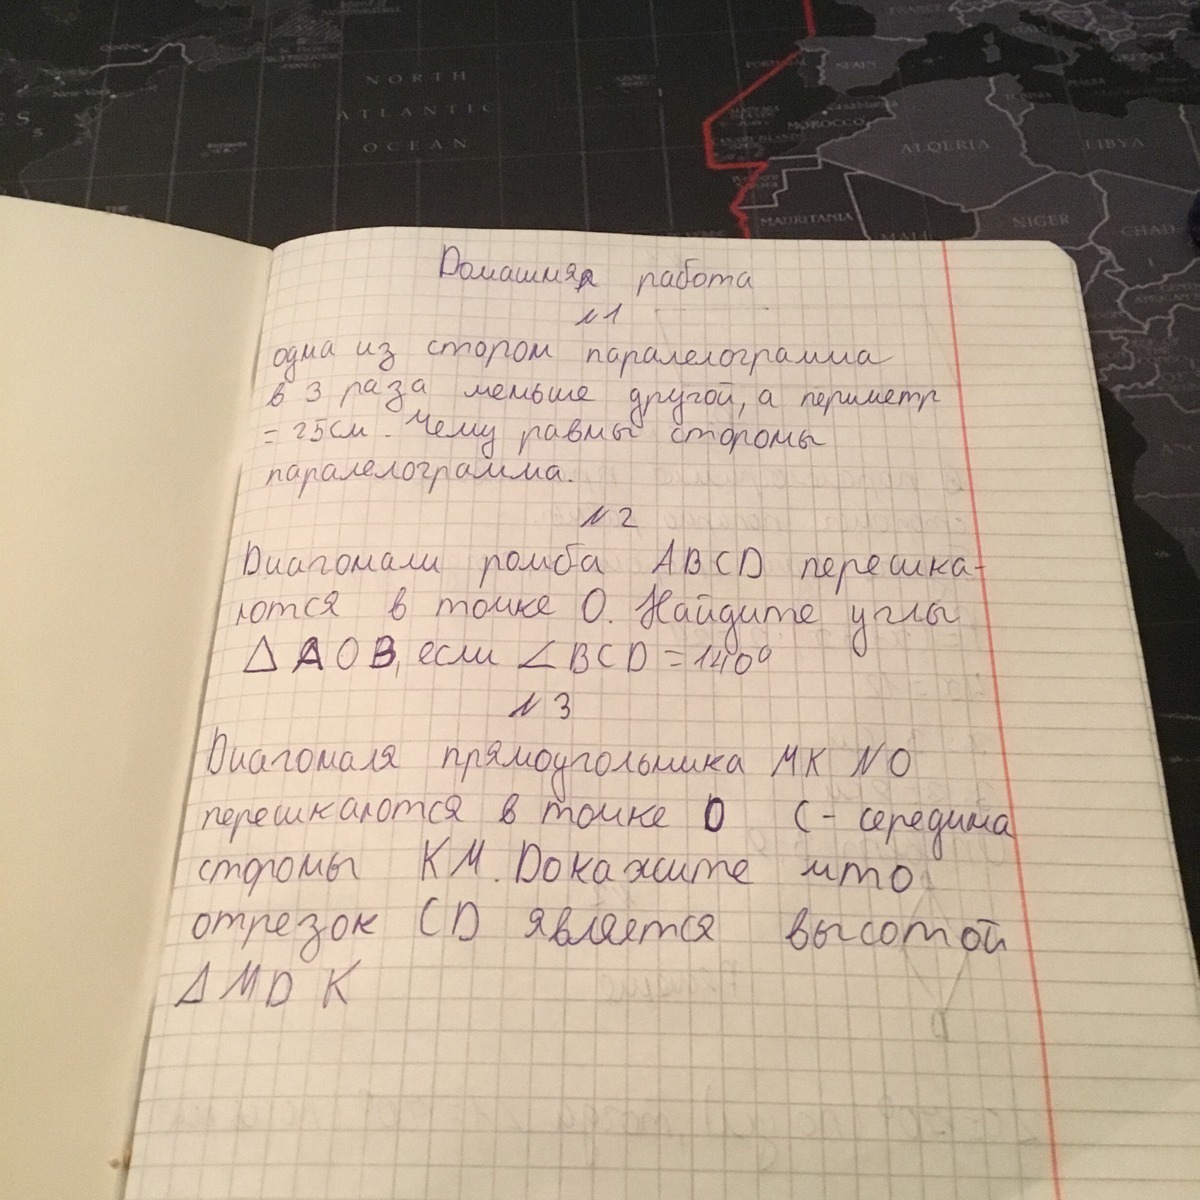 NORTH
ATLANTIC
OCEAN
PORTUGAL
SPAIN
FRANCE
MOROCCO
ALGERIA
LIBYA
MAURITANIA
MALI
NIGER
CHAD
Домашняя работа
№1
одна из сторон паралелограмма
в 3 раза меньше другой, а периметр
= 25см. Чему равны стороны
паралелограмма.
№2
Диагонали ромба ABCD пересека-
ются в точке O. Найдите углы
△ AOB, если ∠BCD = 140°
№3
Диагоналя прямоугольника MK NO
пересекаются в точке D C - середина
стороны KM. Докажите что
отрезок CD является высотой
△MDK